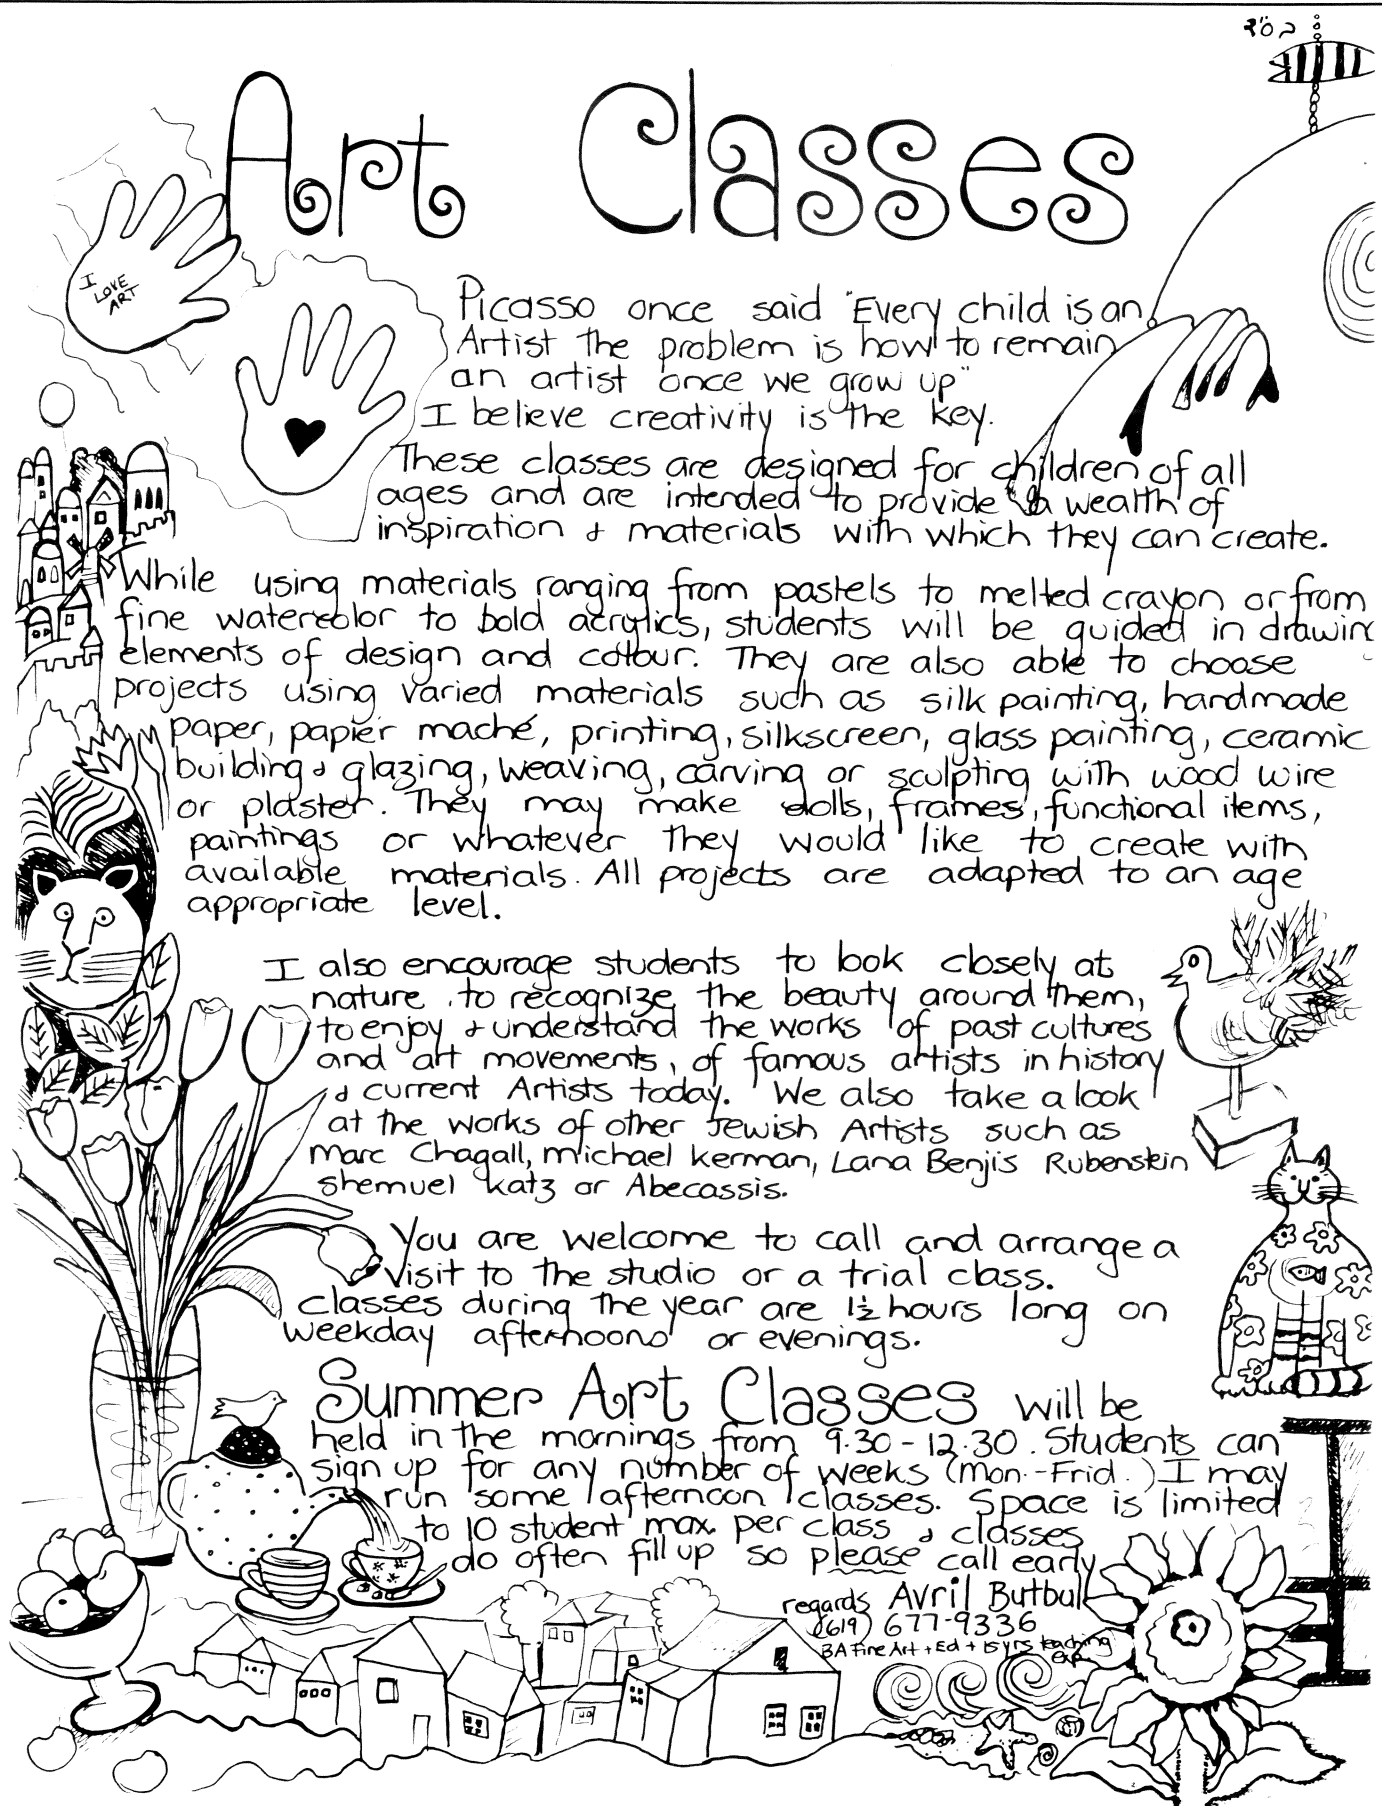 בס"ד
Art Classes
I LOVE ART
Picasso once said "Every child is an
Artist The problem is how to remain
an artist once we grow up"
I believe creativity is the key.
These classes are designed for children of all
ages and are intended to provide a wealth of
inspiration & materials with which they can create.
While using materials ranging from pastels to melted crayon or from
fine watercolor to bold acrylics, students will be guided in drawing
elements of design and colour. They are also able to choose
projects using varied materials such as silk painting, handmade
paper, papier maché, printing, silkscreen, glass painting, ceramic
building & glazing, weaving, carving or sculpting with wood wire
or plaster. They may make dolls, frames, functional items,
paintings or whatever they would like to create with
available materials. All projects are adapted to an age
appropriate level.
I also encourage students to look closely at
nature, to recognize the beauty around them,
to enjoy & understand the works of past cultures
and art movements, of famous artists in history
& current Artists today. We also take a look
at the works of other Jewish Artists such as
Marc Chagall, michael kerman, Lana Benjis Rubenstein
Shemuel Katz or Abecassis.
You are welcome to call and arrange a
visit to the studio or a trial class.
Classes during the year are 1½ hours long on
weekday afternoons or evenings.
Summer Art Classes will be
held in the mornings from 9.30 - 12.30. Students can
sign up for any number of weeks (Mon.-Frid.) I may
run some afternoon classes. Space is limited
to 10 student max. per class & classes
do often fill up so please call early
regards Avril Butbul
(619) 677-9336
BA Fine Art + Ed + 15 yrs teaching
exp.